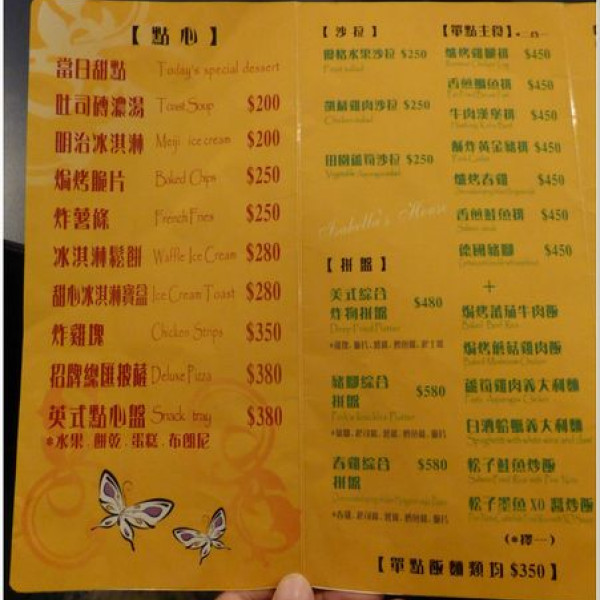 【點心】
當日甜點 Today's special dessert
吐司磚濃湯 Toast Soup $200
明治冰淇淋 Meiji ice cream $200
焗烤脆片 Baked Chips $250
炸薯條 French Fries $250
冰淇淋鬆餅 Waffle Ice Cream $280
甜心冰淇淋寶盒 Ice Cream Toast $280
炸雞塊 Chicken Strips $350
招牌總匯披薩 Deluxe Pizza $380
英式點心盤 Snack tray $380
*水果.餅乾.蛋糕.布朗尼
【沙拉】
優格水果沙拉 $250
Fruit salad
凱薩雞肉沙拉 $250
Chicken salad
田園蘆筍沙拉 $250
Isabella's House
【拼盤】
美式綜合
炸物拼盤 $480
豬腳綜合
拼盤 $580
春雞綜合
拼盤 $580
【單點主食】
爐烤雞腿排 $450
香煎鯛魚排 $450
牛肉漢堡排 $450
酥炸黃金豬排 $450
爐烤春雞 $450
香煎鮭魚排 $450
德國豬腳 $450
+
焗烤蕃茄牛肉飯
Baked Beef Rice
焗烤蘑菇雞肉飯
Baked Mushroom Chicken
蘆筍雞肉義大利麵
Pasta Asparagus Chicken
白酒蛤蠣義大利麵
Spaghetti with white wine and clam
松子鮭魚炒飯
Salmon Fried Rice with Pine Nuts
松子墨魚XO醬炒飯
(*擇一)
【單點飯麵類均$350】